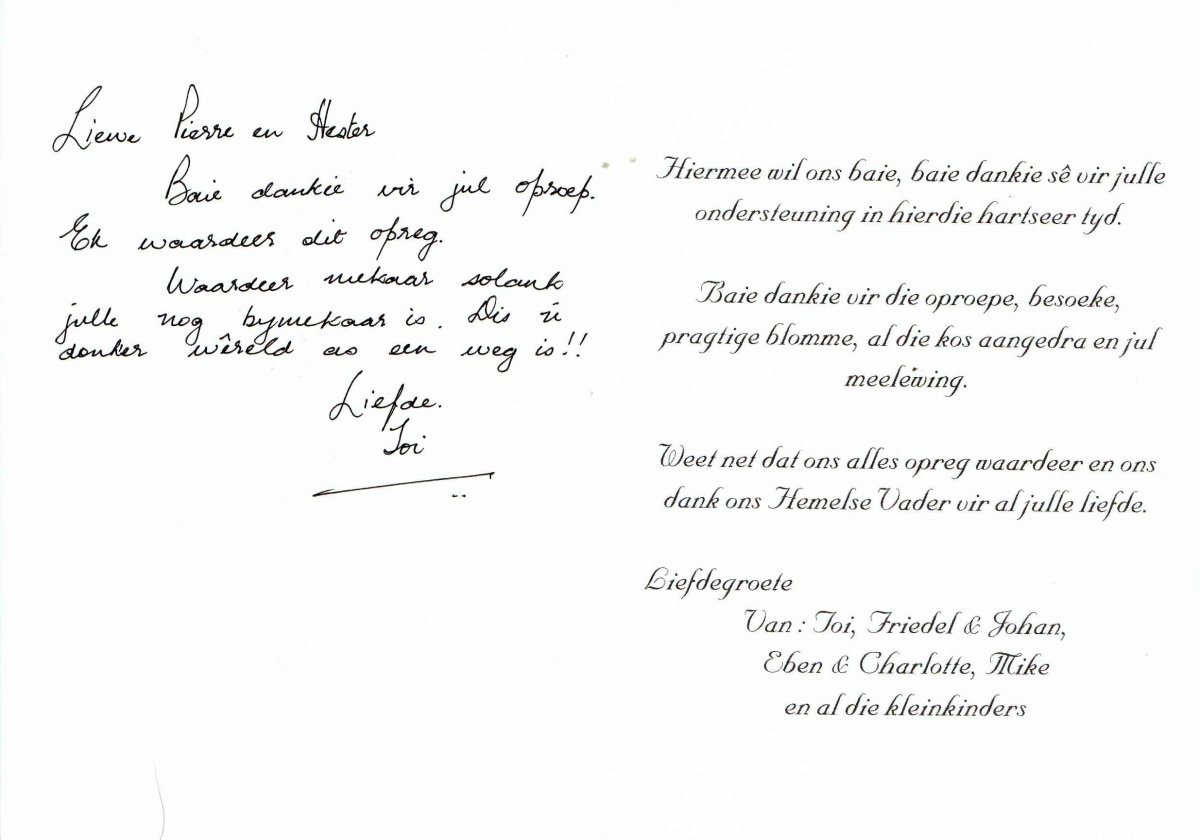 Liewe Pierre en Hester
Baie dankie vir jul oproep.
Ek waardeer dit opreg.
Waardeer mekaar solank
julle nog bymekaar is. Dis 'n
donker wêreld as een weg is!!
Liefde.
Toi
Hiermee wil ons baie, baie dankie sê vir julle
ondersteuning in hierdie hartseer tyd.
Baie dankie vir die oproepe, besoeke,
pragtige blomme, al die kos aangedra en jul
meelewing.
Weet net dat ons alles opreg waardeer en ons
dank ons Hemelse Vader vir al julle liefde.
Liefdegroete
Van: Toi, Friedel & Johan,
Eben & Charlotte, Mike
en al die kleinkinders